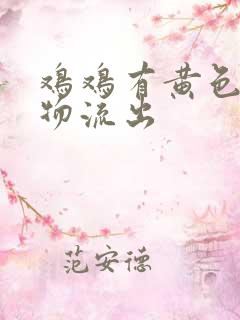 鸡鸡有黄色
物流出
范安德